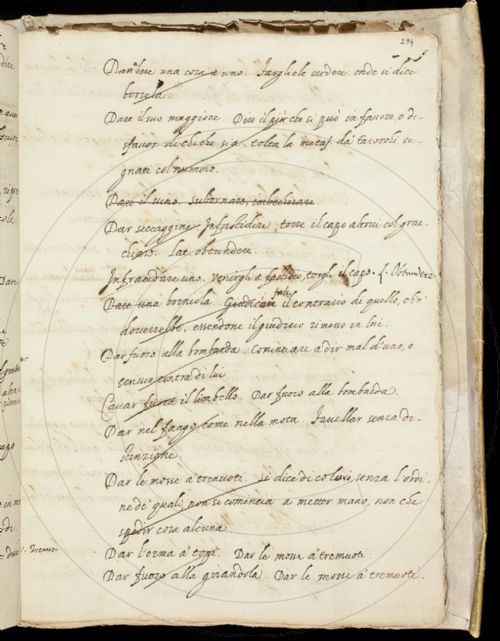 294
Dar bere una cosa a uno. Fargliele credere. onde si dice
bersela
Dare il suo maggiore. Dire il più che si può in favore, o di-
sfavor di chi che sia. tolta la metaf. da tarocchi se-
gnati col numero.
Dare il suno. subornare, imbecherare
Dar seccaggine. Infastidire, torre il capo altrui col grac-
chiare. Lat. obtundere.
Infracidare uno. Venirgli a fastidio, torgli il capo. L. Obtundere.
Dare una bornìola. Giudicare il contrario di quello, che
doverebbe, essendone il giudicio rimesso in lui.
Dar fuoco alla bombarda. Cominciare a dir mal d'uno, o
scriver contra di lui
Cavar fuora il limbello. Dar fuoco alla bombarda.
Dar nel fango come nella mota. Favellar senza di-
stinzione
Dar le mosse a' tremuoti. si dice di coloro, senza l'ordi-
ne de quali non si comincia a metter mano, non che
spedir cosa alcuna
Dar l'orma a' topi. Dar le mosse a' tremuoti.
Dar fuoco alla girandola. Dar le mosse a' tremuoti.